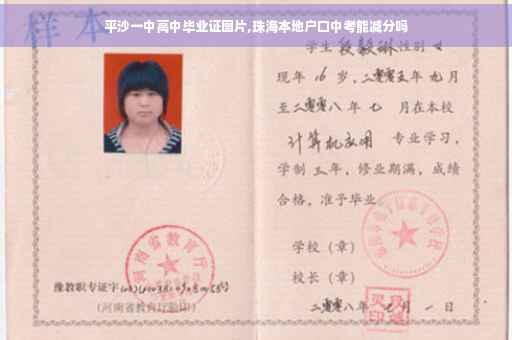 平沙一中高中毕业证图片,珠海本地户口中考能减分吗
样本
学生段毅琳性别女
现年16岁,二零零五年九月
至二零零八年七月在本校
计算机应用 专业学习,
学制三年,修业期满,成绩
合格,准予毕业
学校(章)
校长(章)
河南省教育厅
豫教职专证字
(河南省教育厅验印)
二零零八年七月一日